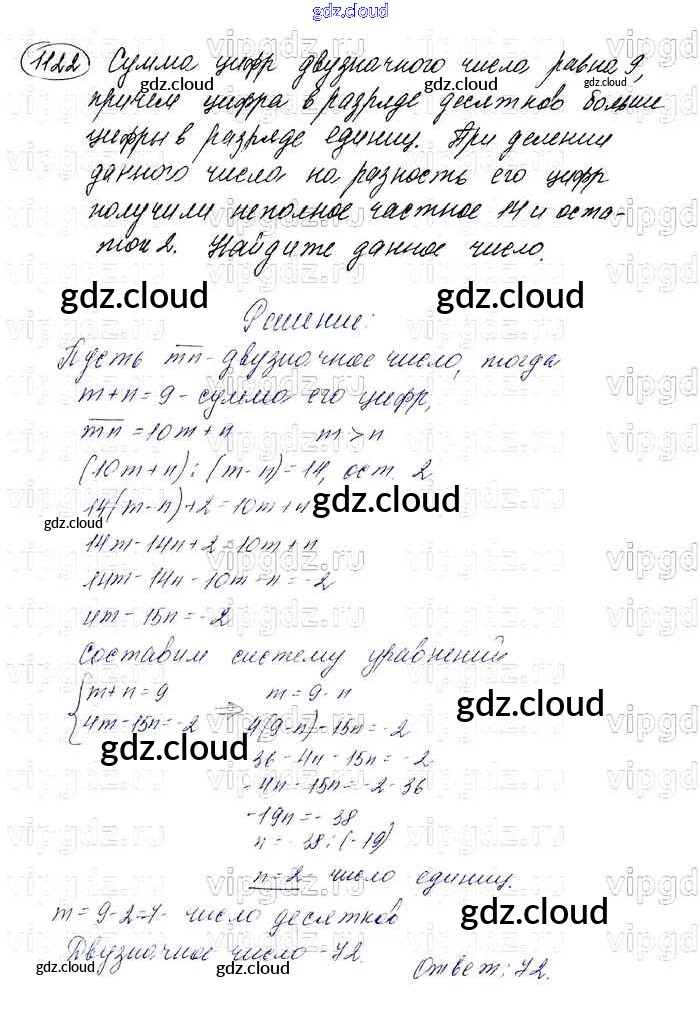 gdz.cloud
1122 Сумма цифр двузначного числа равна 9,
причем цифра в разряде десятков больше
цифры в разряде единиц. При делении
данного числа на разность его цифр
получили неполное частное 14 и оста-
ток 2. Найдите данное число.
gdz.cloud gdz.cloud
Решение:
Пусть mn - двузначное число, тогда
m+n=9 - сумма его цифр,
mn = 10m+n m>n
(10m+n):(m-n)=14, ост. 2
14(m-n)+2=10m+n gdz.cloud
gdz.cloud
14m-14n+2=10m+n
14m-14n-10m=n=-2
4m-15n=-2
Составим систему уравнений
{m+n=9 m=9-n
4m-15n=-2 => 4(9-n)-15n=-2
gdz.cloud gdz.cloud
36-4n-15n=-2
-4n-15n=-2-36
-19n=-38
n=-38:(-19)
n=2 - число единиц.
m=9-2=7- число десятков
gdz.cloud
Двузначное число -72.
gdz.cloud gdz.cloud gdz.cloud
Ответ: 72.